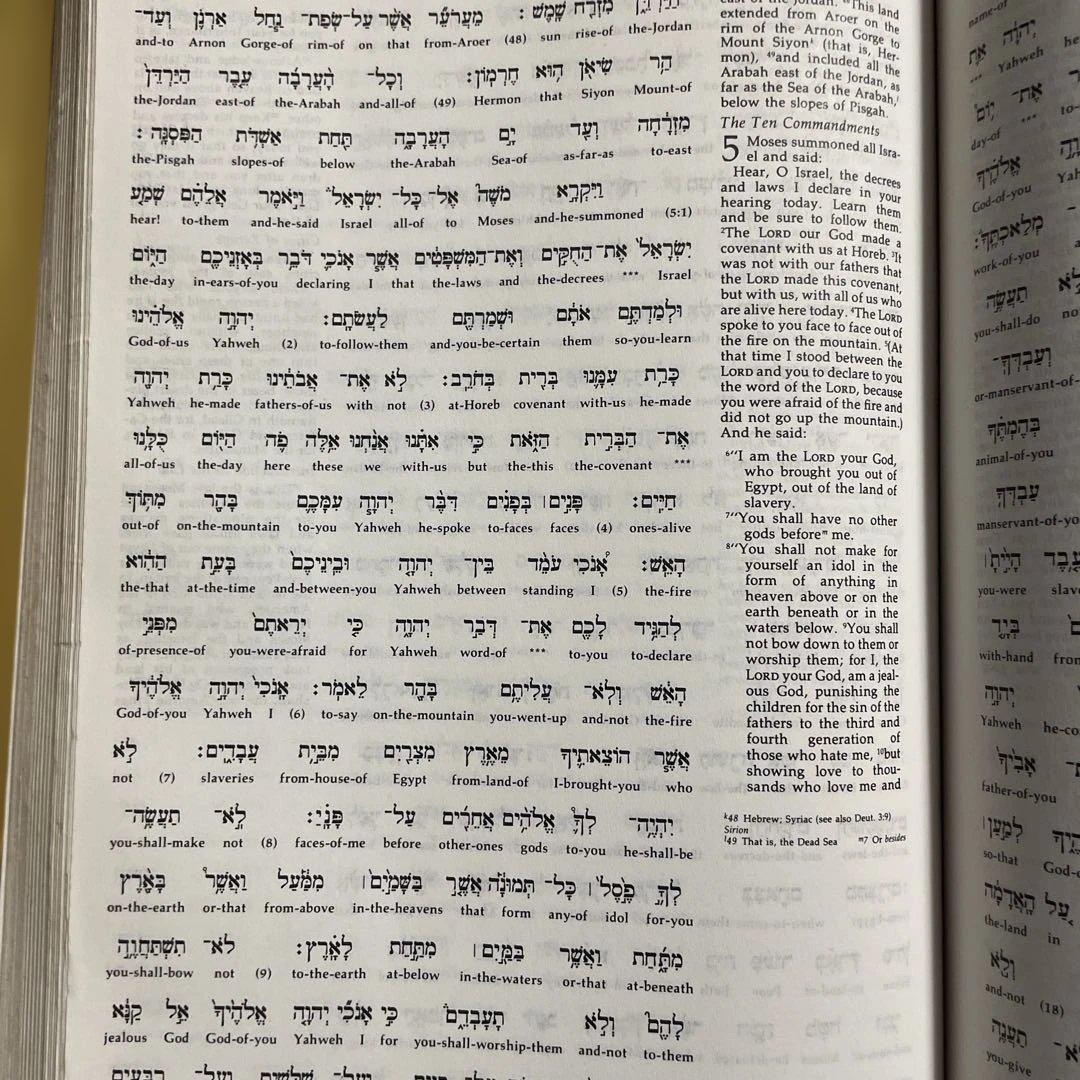 מִזְרַ֣ח שָׁ֑מֶשׁ׃ מֵעֲרֹעֵ֞ר אֲשֶׁ֨ר עַל־שְׂפַת־ נַ֧חַל אַרְנֹ֛ן וְעַד־
and-to Arnon Gorge-of rim-of on that from-Aroer (48) sun rise-of the-Jordan
הַ֥ר שִׂיאֹ֖ן ה֥וּא חֶרְמֽוֹן׃ וְכָל־ הָ֨עֲרָבָ֜ה עֵ֤בֶר הַיַּרְדֵּן֙
the-Jordan east-of the-Arabah and-all-of (49) Hermon that Siyon Mount-of
מִזְרָ֔חָה וְעַ֖ד יָ֣ם הָעֲרָבָ֑ה תַּ֖חַת אַשְׁדֹּ֥ת הַפִּסְגָּֽה׃
the-Pisgah slopes-of below the-Arabah Sea-of as-far-as to-east
וַיִּקְרָ֣א מֹשֶׁה֮ אֶל־ כָּל־ יִשְׂרָאֵל֒ וַיֹּ֣אמֶר אֲלֵהֶ֗ם שְׁמַ֤ע
hear! to-them and-he-said Israel all-of to Moses and-he-summoned (5:1)
יִשְׂרָאֵל֙ אֶת־הַחֻקִּ֣ים וְאֶת־הַמִּשְׁפָּטִ֔ים אֲשֶׁ֧ר אָנֹכִ֛י דֹּבֵ֥ר בְּאָזְנֵיכֶ֖ם הַיּ֑וֹם
the-day in-ears-of-you declaring I that the-laws and the-decrees *** Israel
וּלְמַדְתֶּ֣ם אֹתָ֔ם וּשְׁמַרְתֶּ֖ם לַעֲשֹׂתָֽם׃ יְהוָ֣ה אֱלֹהֵ֗ינוּ
God-of-us Yahweh (2) to-follow-them and-you-be-certain them so-you-learn
כָּרַ֥ת עִמָּ֛נוּ בְּרִ֖ית בְּחֹרֵֽב׃ לֹ֣א אֶת־ אֲבֹתֵ֔ינוּ כָּרַ֥ת יְהוָ֖ה
Yahweh he-made fathers-of-us with not (3) at-Horeb covenant with-us he-made
אֶת־ הַבְּרִ֣ית הַזֹּ֑את כִּ֣י אִתָּ֗נוּ אֲנַ֨חְנוּ אֵ֥לֶּה פֹ֛ה הַיּ֖וֹם כֻּלָּ֥נוּ
all-of-us the-day here these we with-us but the-this the-covenant ***
חַיִּֽים׃ פָּנִ֣ים׀ בְּפָנִ֗ים דִּבֶּ֨ר יְהוָ֧ה עִמָּכֶ֛ם בָּהָ֖ר מִתּ֥וֹךְ
out-of on-the-mountain to-you Yahweh he-spoke to-faces faces (4) ones-alive
הָאֵֽשׁ׃ אָ֠נֹכִי עֹמֵ֨ד בֵּין־ יְהוָ֤ה וּבֵֽינֵיכֶם֙ בָּעֵ֣ת הַהִ֔וא
the-that at-the-time and-between-you Yahweh between standing I (5) the-fire
לְהַגִּ֥יד לָכֶ֖ם אֶת־ דְּבַ֣ר יְהוָ֑ה כִּ֤י יְרֵאתֶם֙ מִפְּנֵ֣י
of-presence-of you-were-afraid for Yahweh word-of *** to-you to-declare
הָאֵ֔שׁ וְלֹֽא־ עֲלִיתֶ֥ם בָּהָ֖ר לֵאמֹֽר׃ אָֽנֹכִי֙ יְהוָ֣ה אֱלֹהֶ֔יךָ
God-of-you Yahweh I (6) to-say on-the-mountain you-went-up and-not the-fire
אֲשֶׁ֧ר הוֹצֵאתִ֛יךָ מֵאֶ֥רֶץ מִצְרַ֖יִם מִבֵּ֣ית עֲבָדִ֑ים׃ לֹ֣א
not (7) slaveries from-house-of Egypt from-land-of I-brought-you who
יִהְיֶֽה־ לְךָ֛ אֱלֹהִ֥ים אֲחֵרִ֖ים עַל־ פָּנָֽ֗יַ׃ לֹֽ֣א־ תַעֲשֶֽׂה־
you-shall-make not (8) faces-of-me before other-ones gods to-you he-shall-be
לְךָ֥ פֶ֣סֶל֙׀ כָּל־ תְּמוּנָ֡ה אֲשֶׁ֣ר בַּשָּׁמַ֣יִם׀ מִמַּ֡עַל וַאֲשֶׁר֩ בָּאָ֨רֶץ
on-the-earth or-that from-above in-the-heavens that form any-of idol for-you
מִתַּ֜חַת וַאֲשֶׁ֥ר בַּמַּ֣יִם׀ מִתַּ֣חַת לָאָ֗רֶץ׃ לֹא־ תִשְׁתַּחֲוֶ֥ה
you-shall-bow not (9) to-the-earth at-below in-the-waters or-that at-beneath
לָהֶם֮ וְלֹ֣א תָעָבְדֵ֑ם֒ כִּ֣י אָנֹכִ֞י יְהוָ֤ה אֱלֹהֶ֙יךָ֙ אֵ֣ל קַנָּ֔א
jealous God God-of-you Yahweh I for you-shall-worship-them and-not to-them
east of the Jordan. ⁴⁸This land
extended from Aroer on the
rim of the Arnon Gorge to
Mount Siyonᵏ (that is, Her-
mon), ⁴⁹and included all the
Arabah east of the Jordan, as
far as the Sea of the Arabah,ˡ
below the slopes of Pisgah.
The Ten Commandments
5 Moses summoned all Isra-
el and said:
Hear, O Israel, the decrees
and laws I declare in your
hearing today. Learn them
and be sure to follow them.
²The LORD our God made a
covenant with us at Horeb. ³It
was not with our fathers that
the LORD made this covenant,
but with us, with all of us who
are alive here today. ⁴The LORD
spoke to you face to face out of
the fire on the mountain. ⁵(At
that time I stood between the
LORD and you to declare to you
the word of the LORD, because
you were afraid of the fire and
did not go up the mountain.)
And he said:
⁶"I am the LORD your God,
who brought you out of
Egypt, out of the land of
slavery.
⁷"You shall have no other
gods beforeᵐ me.
⁸"You shall not make for
yourself an idol in the
form of anything in
heaven above or on the
earth beneath or in the
waters below. ⁹You shall
not bow down to them or
worship them; for I, the
LORD your God, am a jeal-
ous God, punishing the
children for the sin of the
fathers to the third and
fourth generation of
those who hate me, ¹⁰but
showing love to thou-
sands who love me and
ᵏ48 Hebrew; Syriac (see also Deut. 3:9)
Sirion
ˡ49 That is, the Dead Sea ᵐ7 Or besides
name-of
יְהוָ֥ה אֵ֛ת
*** Yahweh
אֶת־ י֥וֹם
day-of ***
אֱלֹהֶ֖יךָ
God-of-you
מְלַאכְתֶּֽךָ׃
work-of-you
תַעֲשֶׂ֣ה
you-shall-do
וְעַבְדְּךָ֣
or-manservant-of
בְּהֶמְתֶּ֗ךָ
animal-of-you
עַבְדְּךָ֥
manservant-of-yo
הָיִ֣יתָ
you-were
בְּיָ֤ד
with-hand
יְהוָ֣ה
Yahweh
אָבִ֙יךָ֙
father-of-you
לְמַ֣עַן׀
so-that
עַ֚ל הָֽאֲדָמָ֔ה
the-land in
וְלֹ֖א
and-not (18)
תַעֲנֶ֥ה
you-give